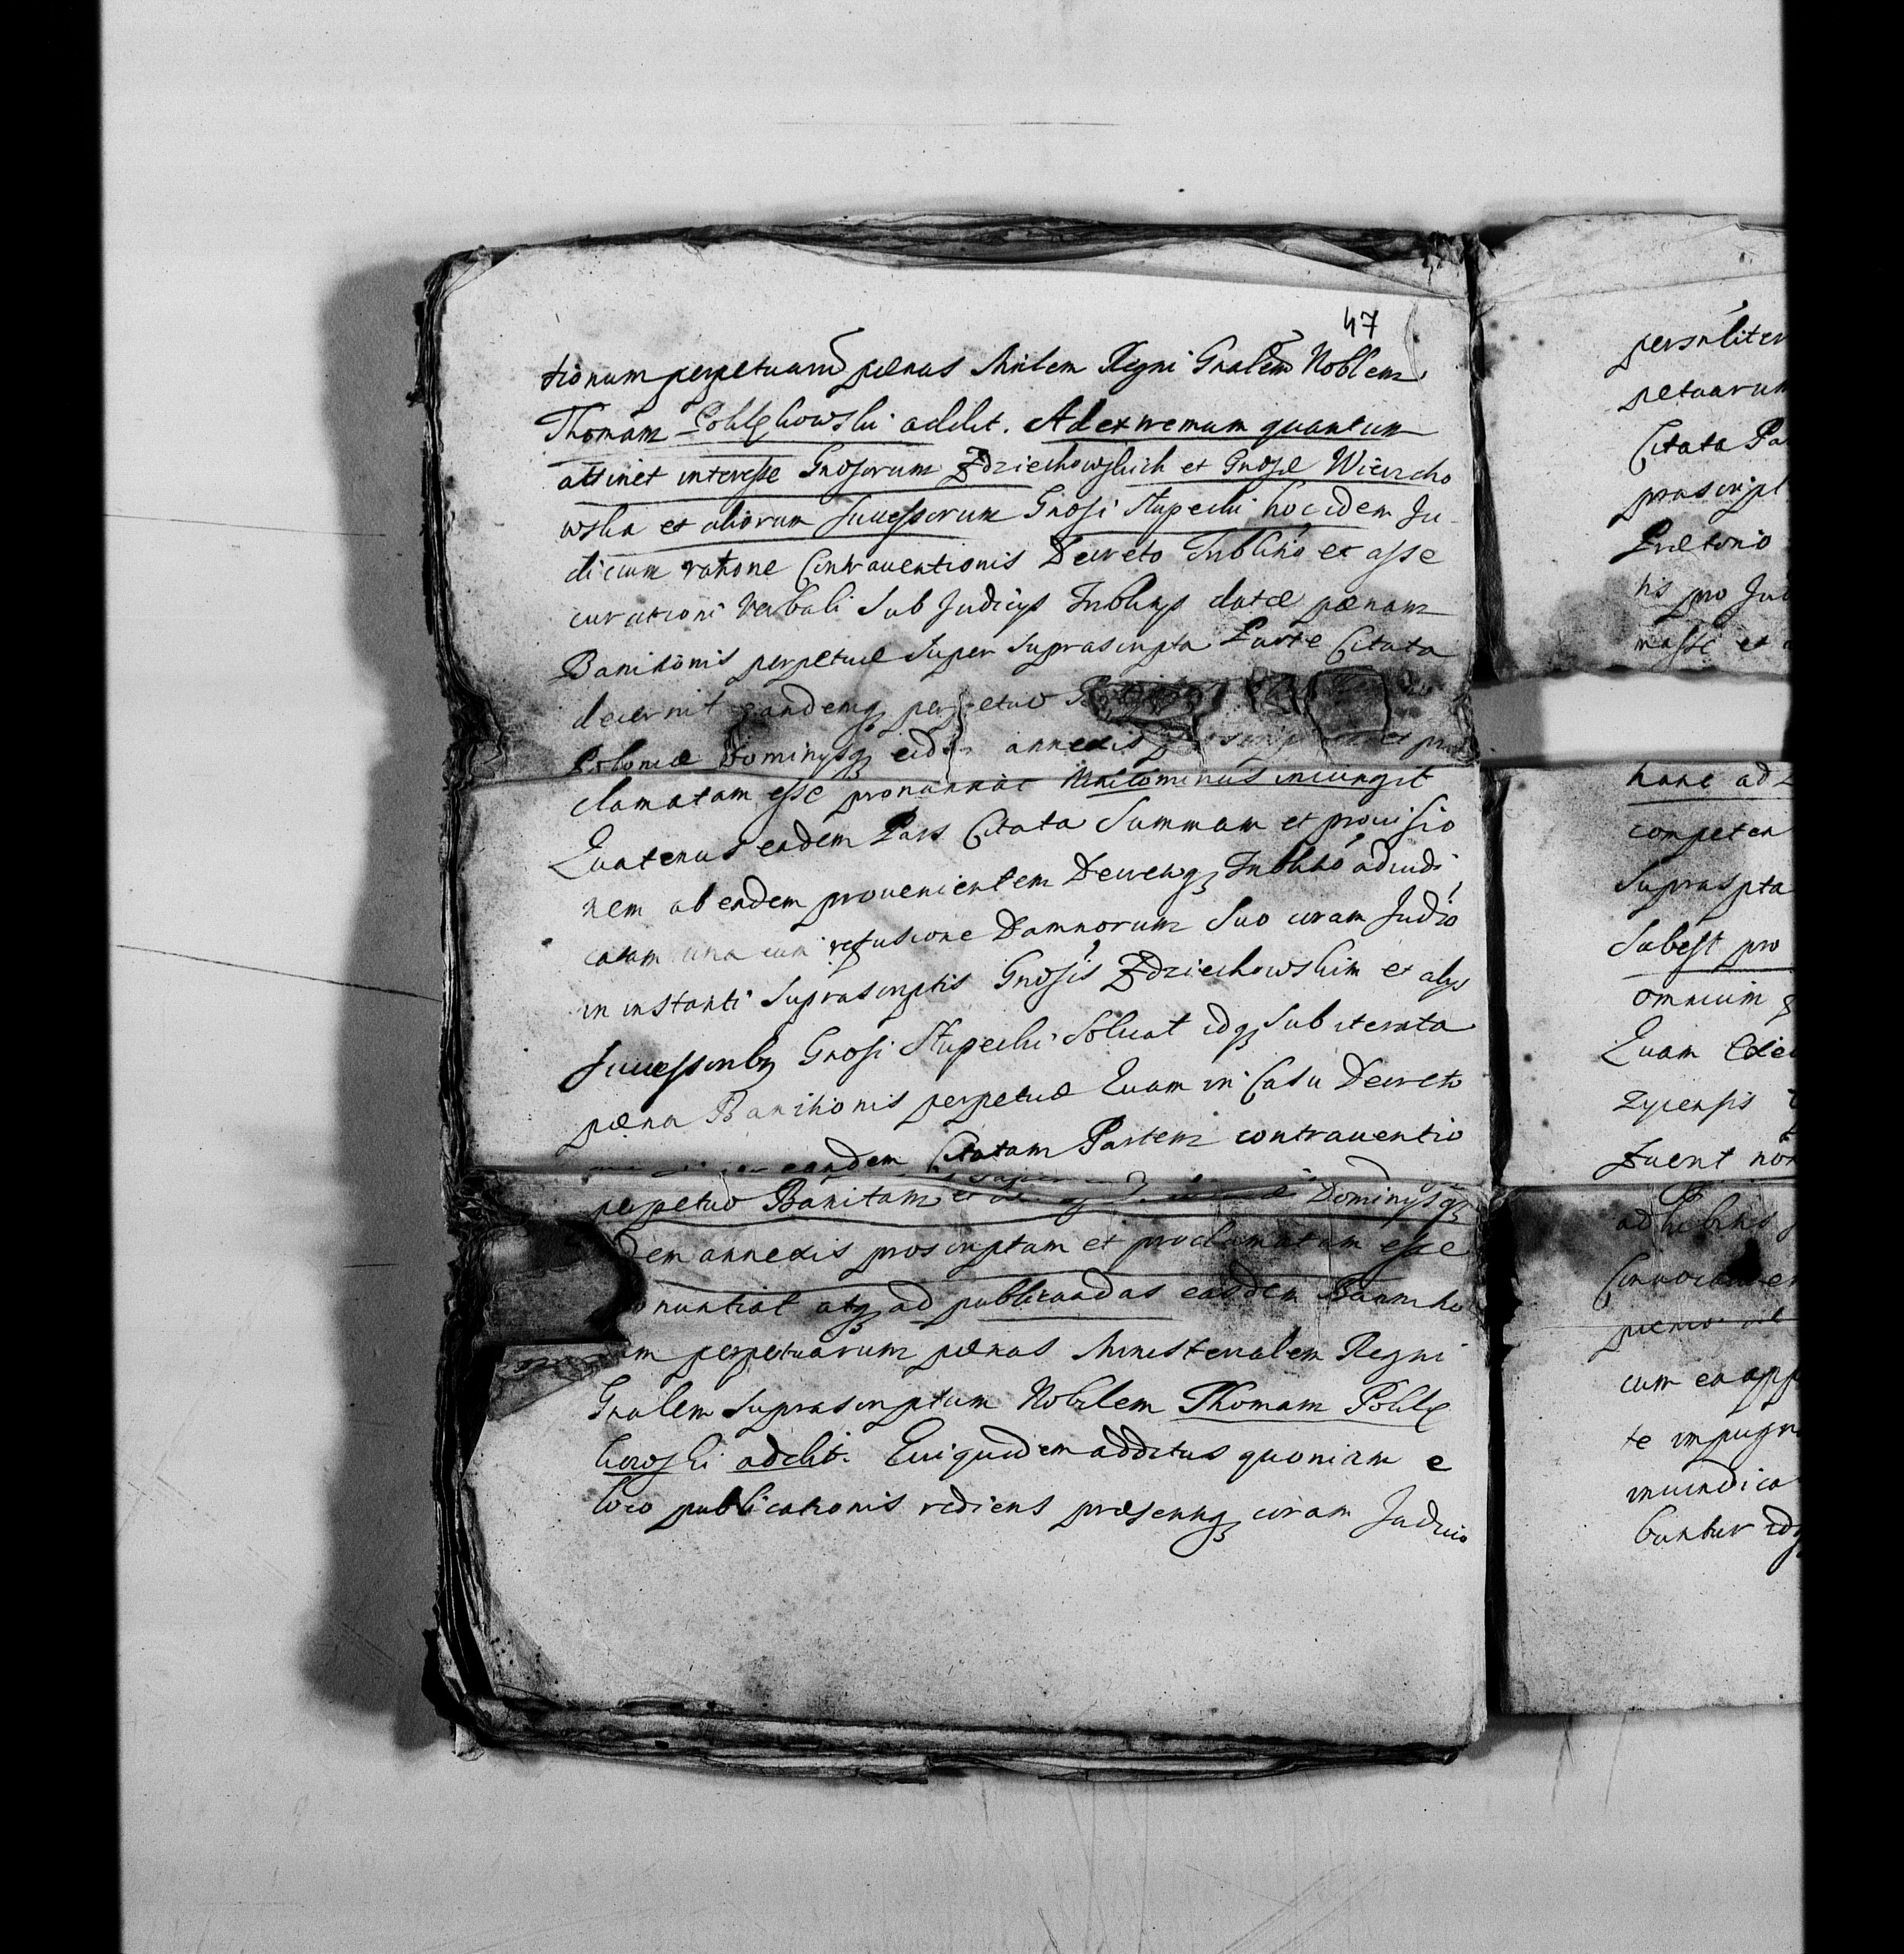 47
tionum perpetuarũ pænas Mnlem Regni Gnalem Noblem
Thomam addit. Ad extremum quantum
attinet interesse Gnosorum Zdziechowskich et Gnosæ Wiercho
wska et aliorum Successorum Gnosi Słupecki hoc idem Ju-
dicium ratione Contrauentionis Decreto Tnblii et asse
curationi verbali sub Judicys datæ pænam
Banitionis perpetuæ super suprascripta Parte Citata
decernit eandemq perpetuo
Poloniæ Dominysq annexis et
clamatam esse pronunciat Nihilominus iniungit
Quatenus eadem Pars Citata Summam et prouisio
nem ab eadem prouenientem adiudi
catam una cum refusione Damnorum suo coram Judio
in instanti suprascriptis Gnosis Zdziechowskim et alys
Successoribq Gnosi Słupecki soluat idq sub iterata
pæna Banitionis perpetuæ Quam in Casu Decreto
eandem Citatam Partem contrauentio
perpetuo Banitam et Dominysq
dem annexis proscriptam et proclamatam esse
onuntiat atq ad publicandas easdem Bannitio
um perpetuarum pænas Ministerialem Regni
Gnalem suprascriptum Nobilem Thomam
addit. Qui quidem additus quoniam e
loco publicationis rediens præsensq coram Judicio
persnliter
petuarum
Citata Pa
prascript
Prætorio
tis pro Jud
masse et
hanc ad
competen
supraspta
subest pro
omnium
Quam
zyciensis
fuerit non
adhibitis
cum ea app
te impugn
inuindica
buntur idq